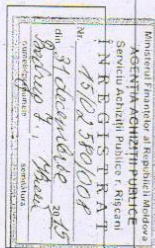 Ministerul Finanțelor al Republicii Moldova
AGENȚIA ACHIZIȚII PUBLICE
Serviciu Achiziții Publice r. Rîșcani
ÎNREGISTRAT
Nr. 15/02580/008
din 31 decembrie 2015
numele, prenumele
semnătura